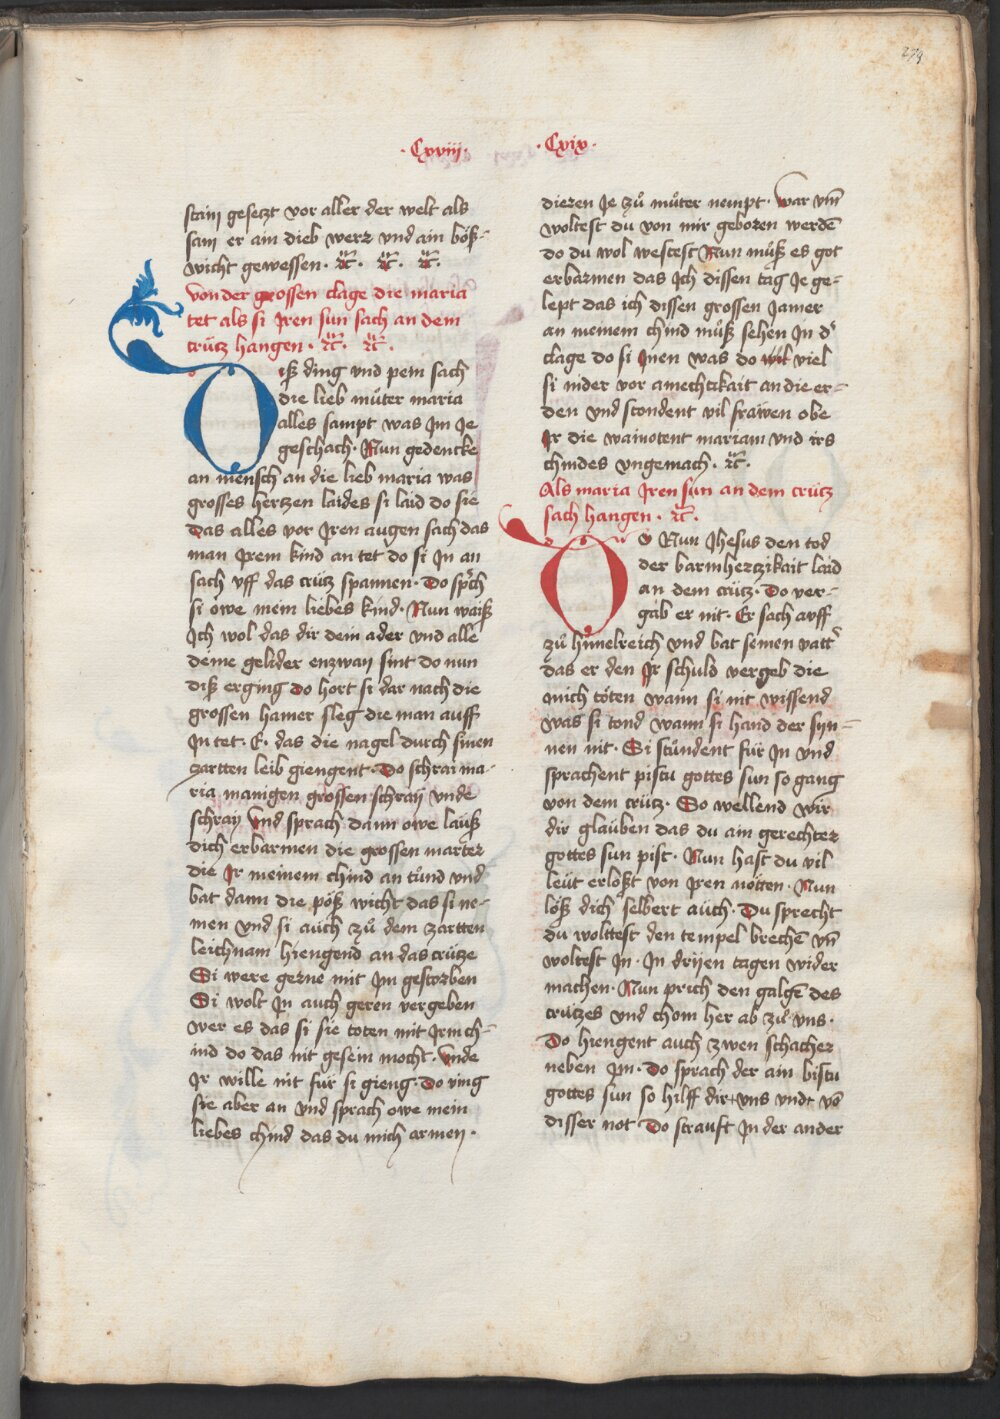 279
·Cxviij·
stain gesetzt vor aller der welt als
sam er ain dieb werr vnd ain böß-
wicht gewessen · ꝛc̃ · ꝛc̃ · ꝛc̃ ·
von der grossen clage die maria
tet als si Jren sun sach an dem
crütz hangen · ꝛc̃ · ꝛc̃ ·
Diß ding vnd pein sach
die lieb můter maria
alles sampt was Jm Je
geschach · Nun gedencke
an mensch an die lieb maria was
grosses hertzen laides si laid do sie
das alles vor Jren augen sach das
man Jrem kind an tet do si Jn an
sach vff das crütz spannen · Do sprch
si owe mein liebes kind · Nun waiß
Jch wol das dir dein ader vnd alle
deine gelider enzway sint do nun
diß erging do hort si dar nach die
grossen hamer sleg die man auff
Jn tet · E · das die nagel durch sinen
zartten leib giengent · Do schrai ma-
ria manigen grossen schray vnde
schray vnd sprach dann owe lauß
dich erbarmen die grossen marter
die Jr meinem chind an tůnd vnd
bat dann die pöß wicht das si ne-
men vnd si auch zů dem zartten
leichnam hiengend an das crütze
Si were gerne mit Jm gestorben
Si wolt Jn auch geren vergeben
wer es das si sie toten mit Jrm ch-
ind do das nit gesein mocht · vnde
Jr wille nit für si gieng · Do ving
sie aber an vnd sprach owe mein
liebes chind das du mich armen ·
·Cxix·
dieren Je zů můter nempt · war vm̃
woltest du von mir geboren werdẽ
do du wol westest Nun můß es got
erbarmen das Jch dissen tag Je ge-
lept das ich dissen grossen Jamer
an meinem chind můß sehen Jn d'
clage do si Jnen was do viel
si nider vor amechtikait an die er-
den vnd stondent vil frawen obe
Jr die wainotent mariam vnd irs
chindes vngemach · ꝛc̃ ·
Als maria Jren sun an dem crütz
sach hangen · ꝛc̃ ·
Do Nun Jhesus den tod
der barmhertzikait laid
an dem crütz · Do ver-
gab er nit · Er sach avff
zů himelreich vnd bat seinen vatt'
das er den Jr schuld vergeb die
mich töten wann si nit wissend
was si tond wann si hand der syn-
nen nit · Si stůndent für Jn vnd
sprachent pistu gottes sun so gang
von dem crütz · So wellend wir
dir glauben das du ain gerechter
gottes sun pist · Nun hast du vil
leüt erlößt von Jren nötten · Nun
löß dich selbert auch · Du sprecht
du wolttest den tempel brechẽ vñ
woltest Jn · Jn dryen tagen wider
machen · Nun prich den galgẽ des
crützes vnd chom her ab zů vns ·
Do hiengent auch zwen schacher
neben Jm · Do sprach der ain bistu
gottes sun so hilff dir vns vnd võ
disser not Do strauft Jn der ander